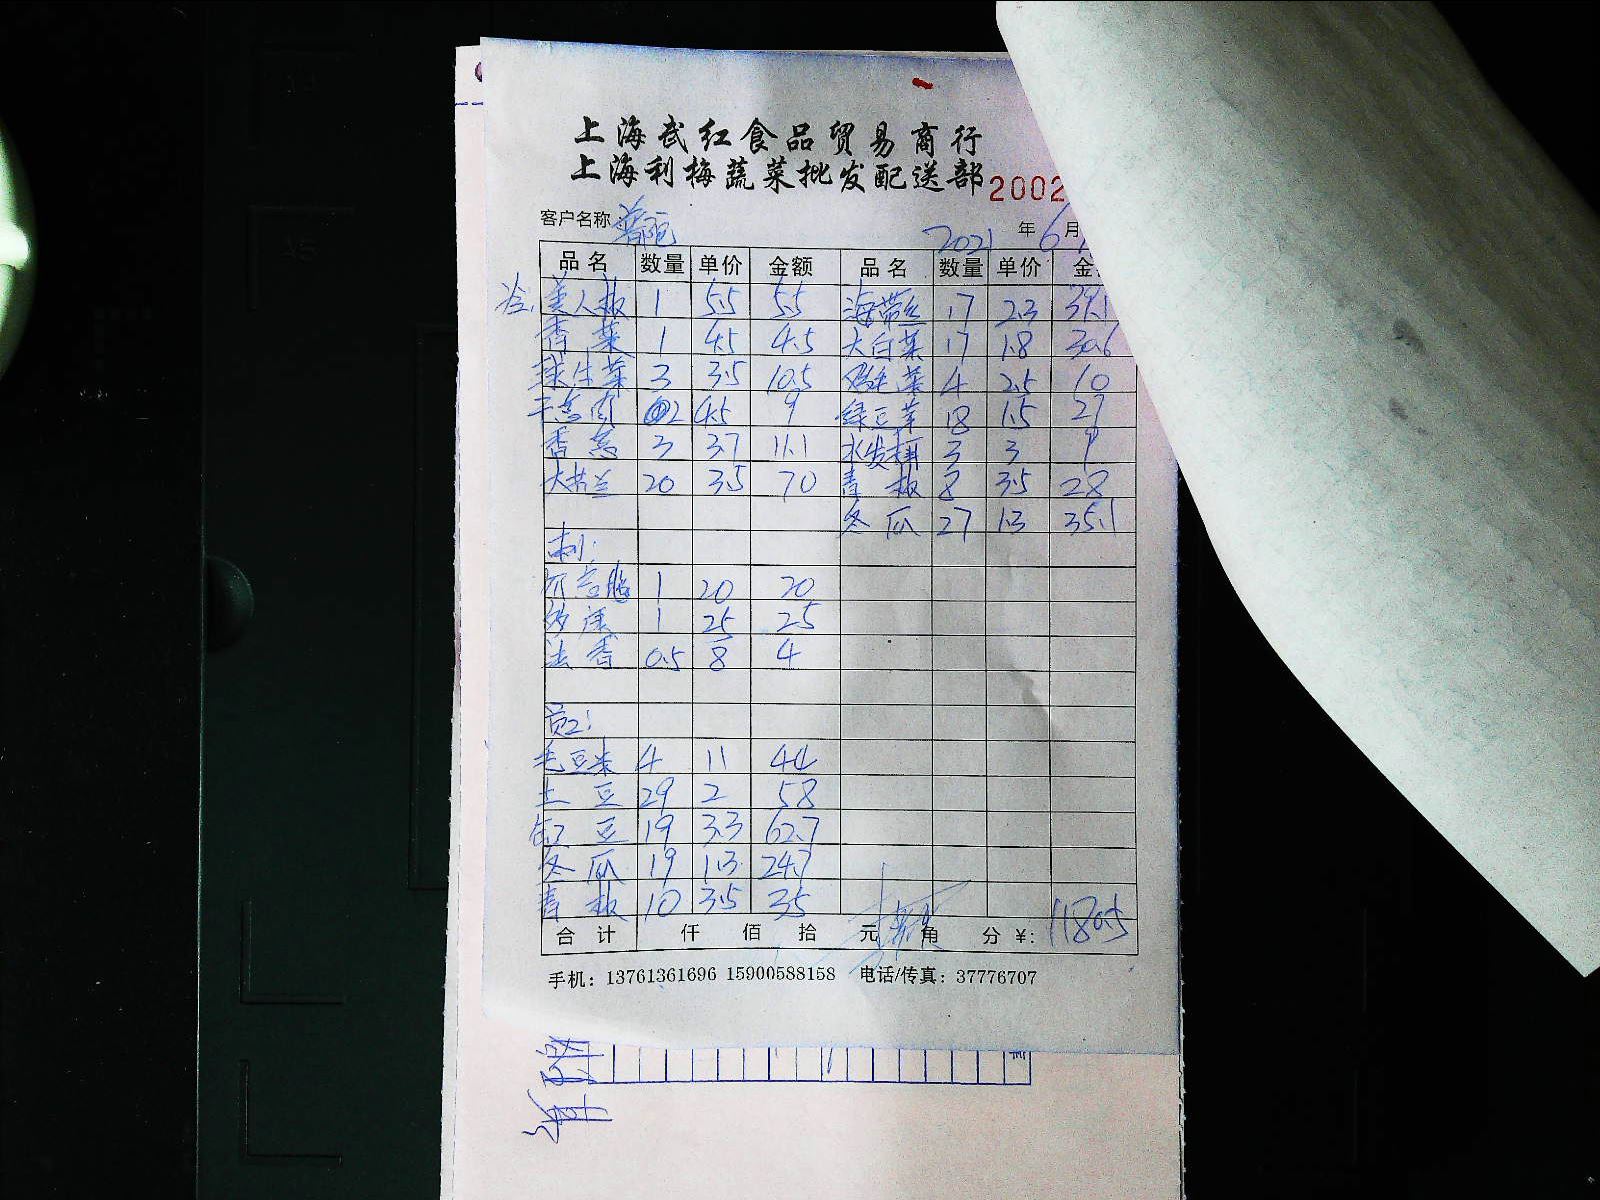 上海武红食品贸易商行
上海利梅蔬菜批发配送部
2002
客户名称:
2021 年 6 月
品名 数量 单价 金额 品名 数量 单价 金
冷: 美人椒 1 5.5 5.5 海带丝 17 2.3 39.1
香菜 1 4.5 4.5 大白菜 17 1.8 30.6
球生菜 3 3.5 10.5 鸡毛菜 4 2.5 10
干葱肉 2 4.5 9 绿豆芽 18 1.5 27
香葱 3 3.7 11.1 水发 3 3 9
大芥兰 20 3.5 70 青椒 8 3.5 28
冬瓜 27 1.3 35.1
刺:
1 20 20
1 25 25
法香 0.5 8 4
员工:
毛豆米 4 11 44
土豆 29 2 58
豆 19 3.3 62.7
冬瓜 19 1.3 24.7
青椒 10 3.5 35
合计 仟 佰 拾 元 角 分 ¥: 1180.5
手机: 13761361696 15900588158 电话/传真: 37776707